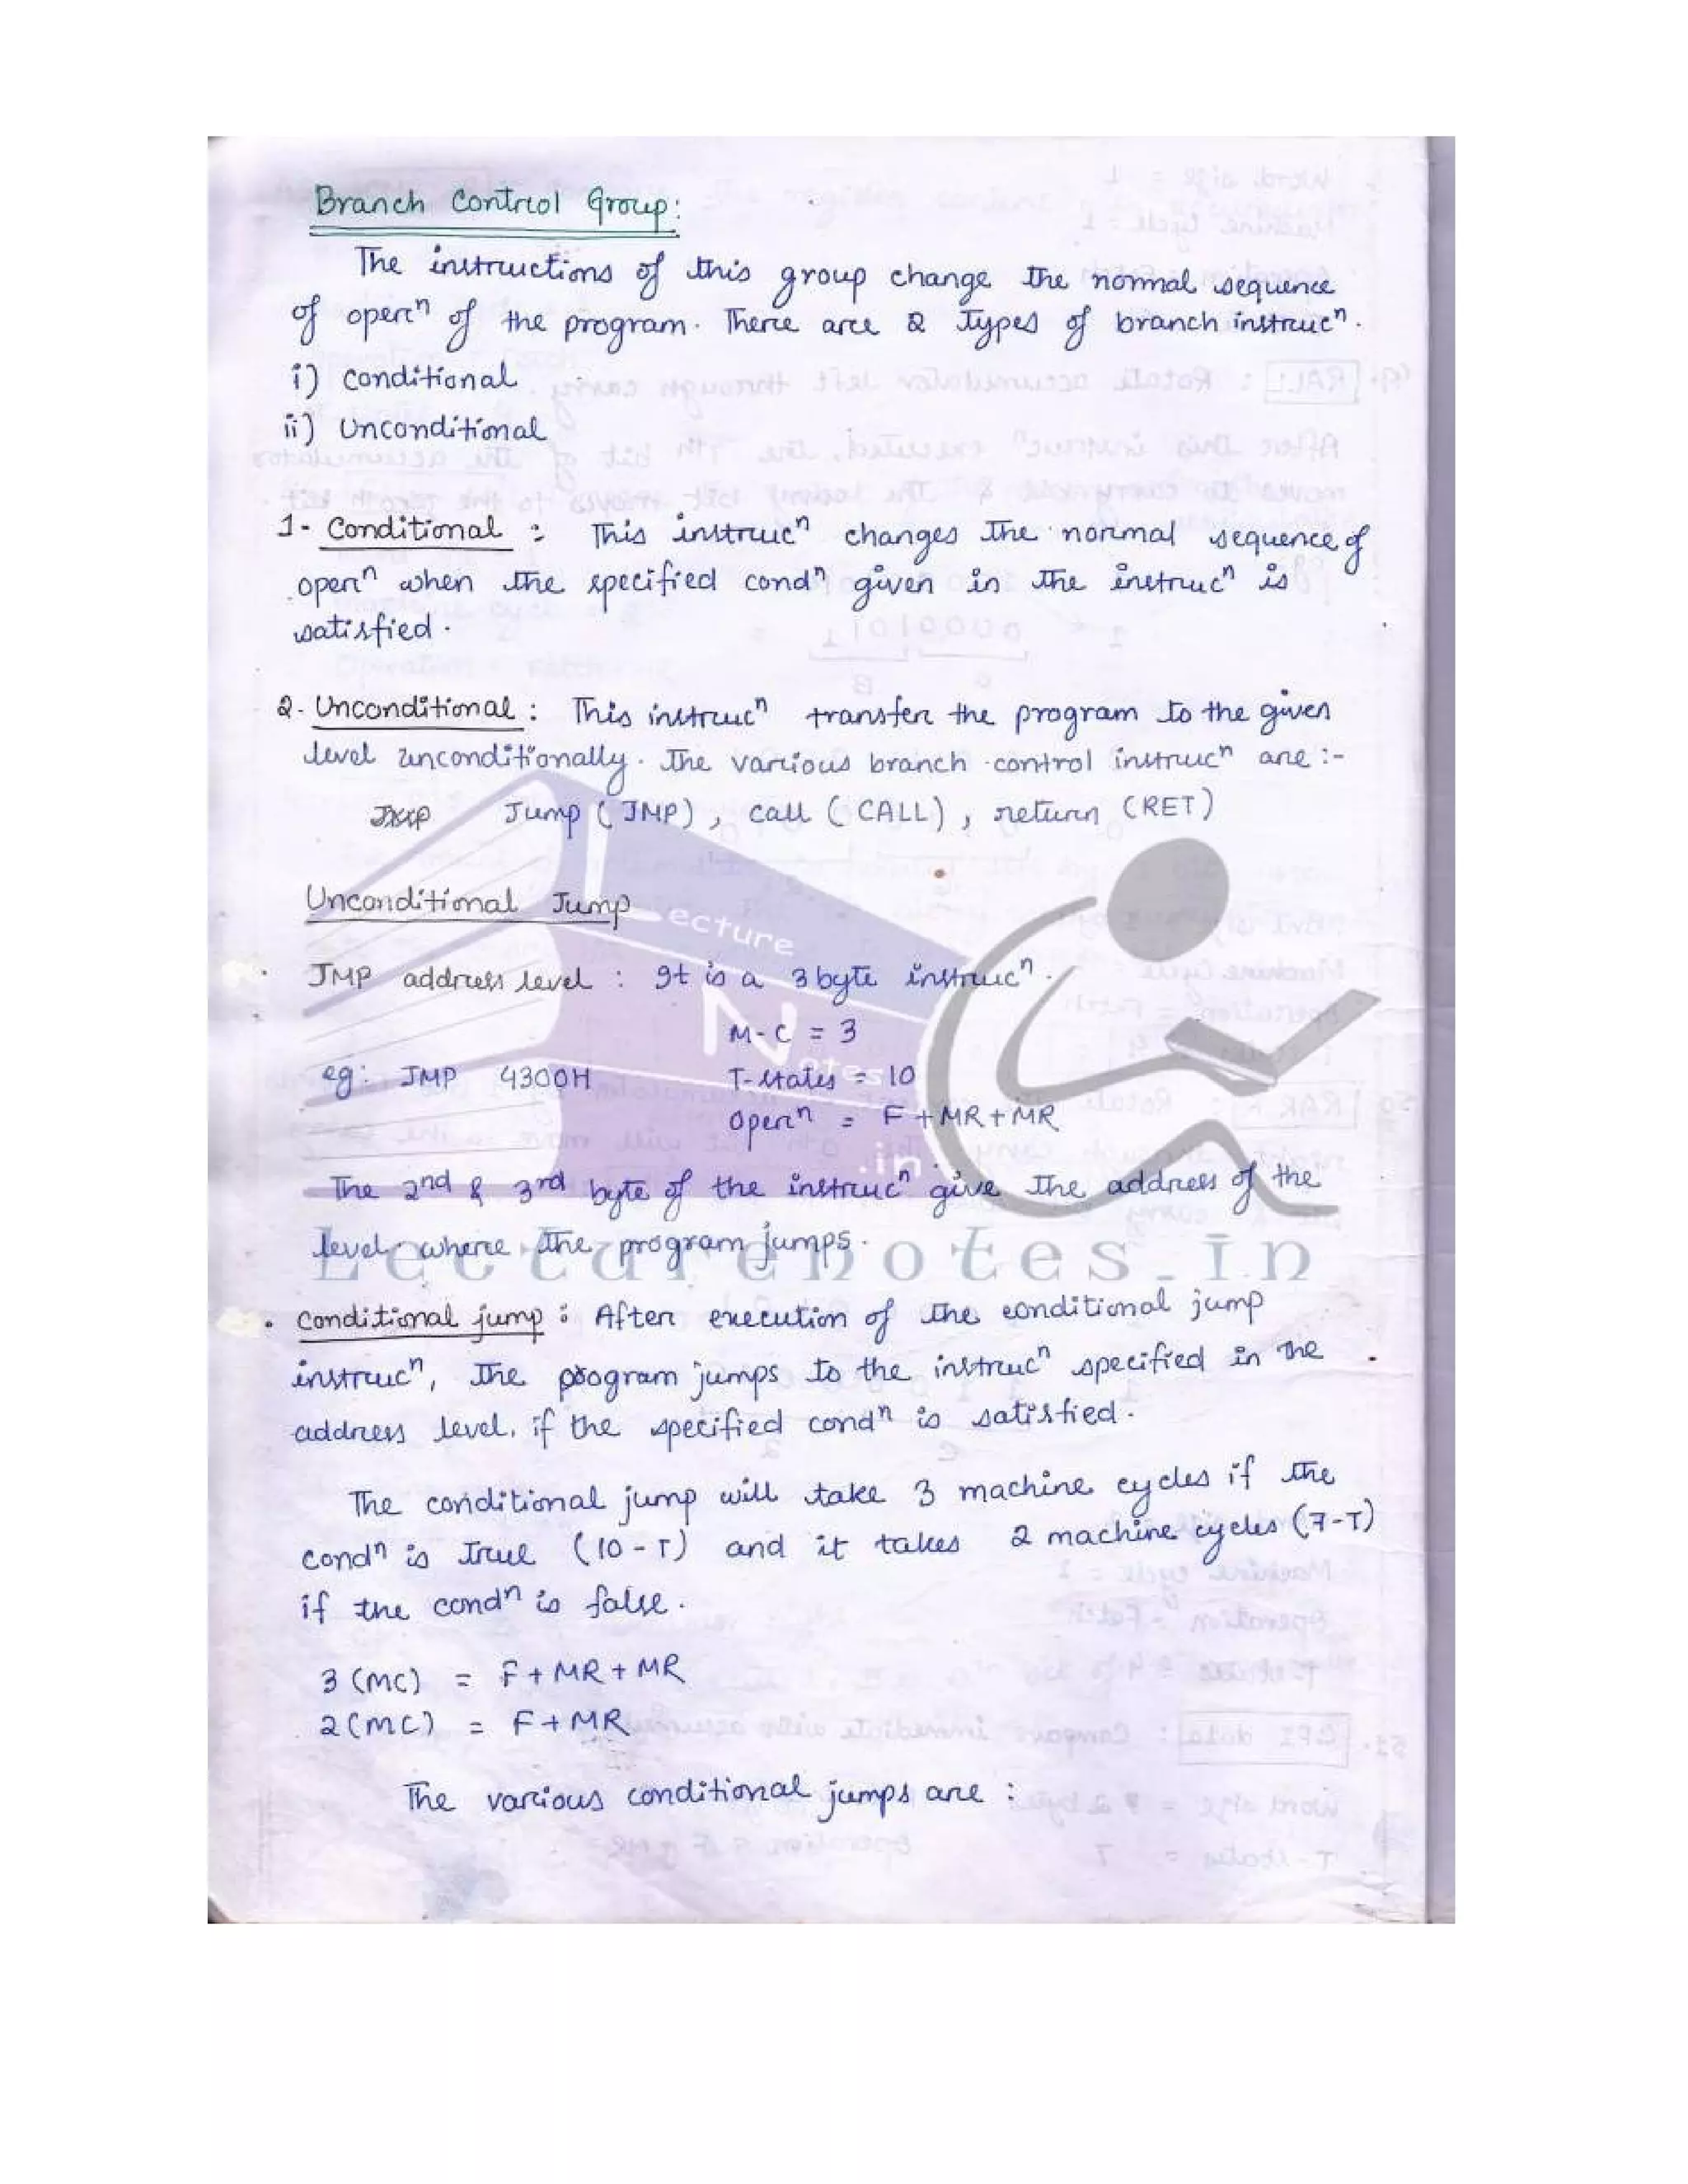 Branch Control Group:
The instructions of this group change the normal sequence
of opern of the program. There are 2 Types of branch instrucn.
i) Conditional
ii) Unconditional
1- Conditional : This instrucn changes The normal sequence of
opern when the specified condn given in the instrucn is
satisfied.
2. Unconditional : This instrucn transfer the program to the given
level unconditionally. The various branch control instrucn are :-
Jump ( JMP ) , call ( CALL ) , return (RET)
Unconditional Jump
JMP address level : It is a 3 byte instrucn.
M-C = 3
eg: JMP 4300H T-states = 10
opern = F + MR + MR
The 2nd & 3rd byte of the instrucn give the address of the
level where the program jumps.
Lecture Notes .in
Lecturenotes.in
• Conditional jump : After execution of the conditional jump
instrucn, The program jumps to the instrucn specified in the
address level, if the specified condn is satisfied.
The conditional jump will take 3 machine cycles if the
condn is True (10-T) and it takes 2 machine cycles (7-T)
if the condn is false.
3 (MC) = F + MR + MR
2 (MC) = F + MR
The various conditional jumps are :